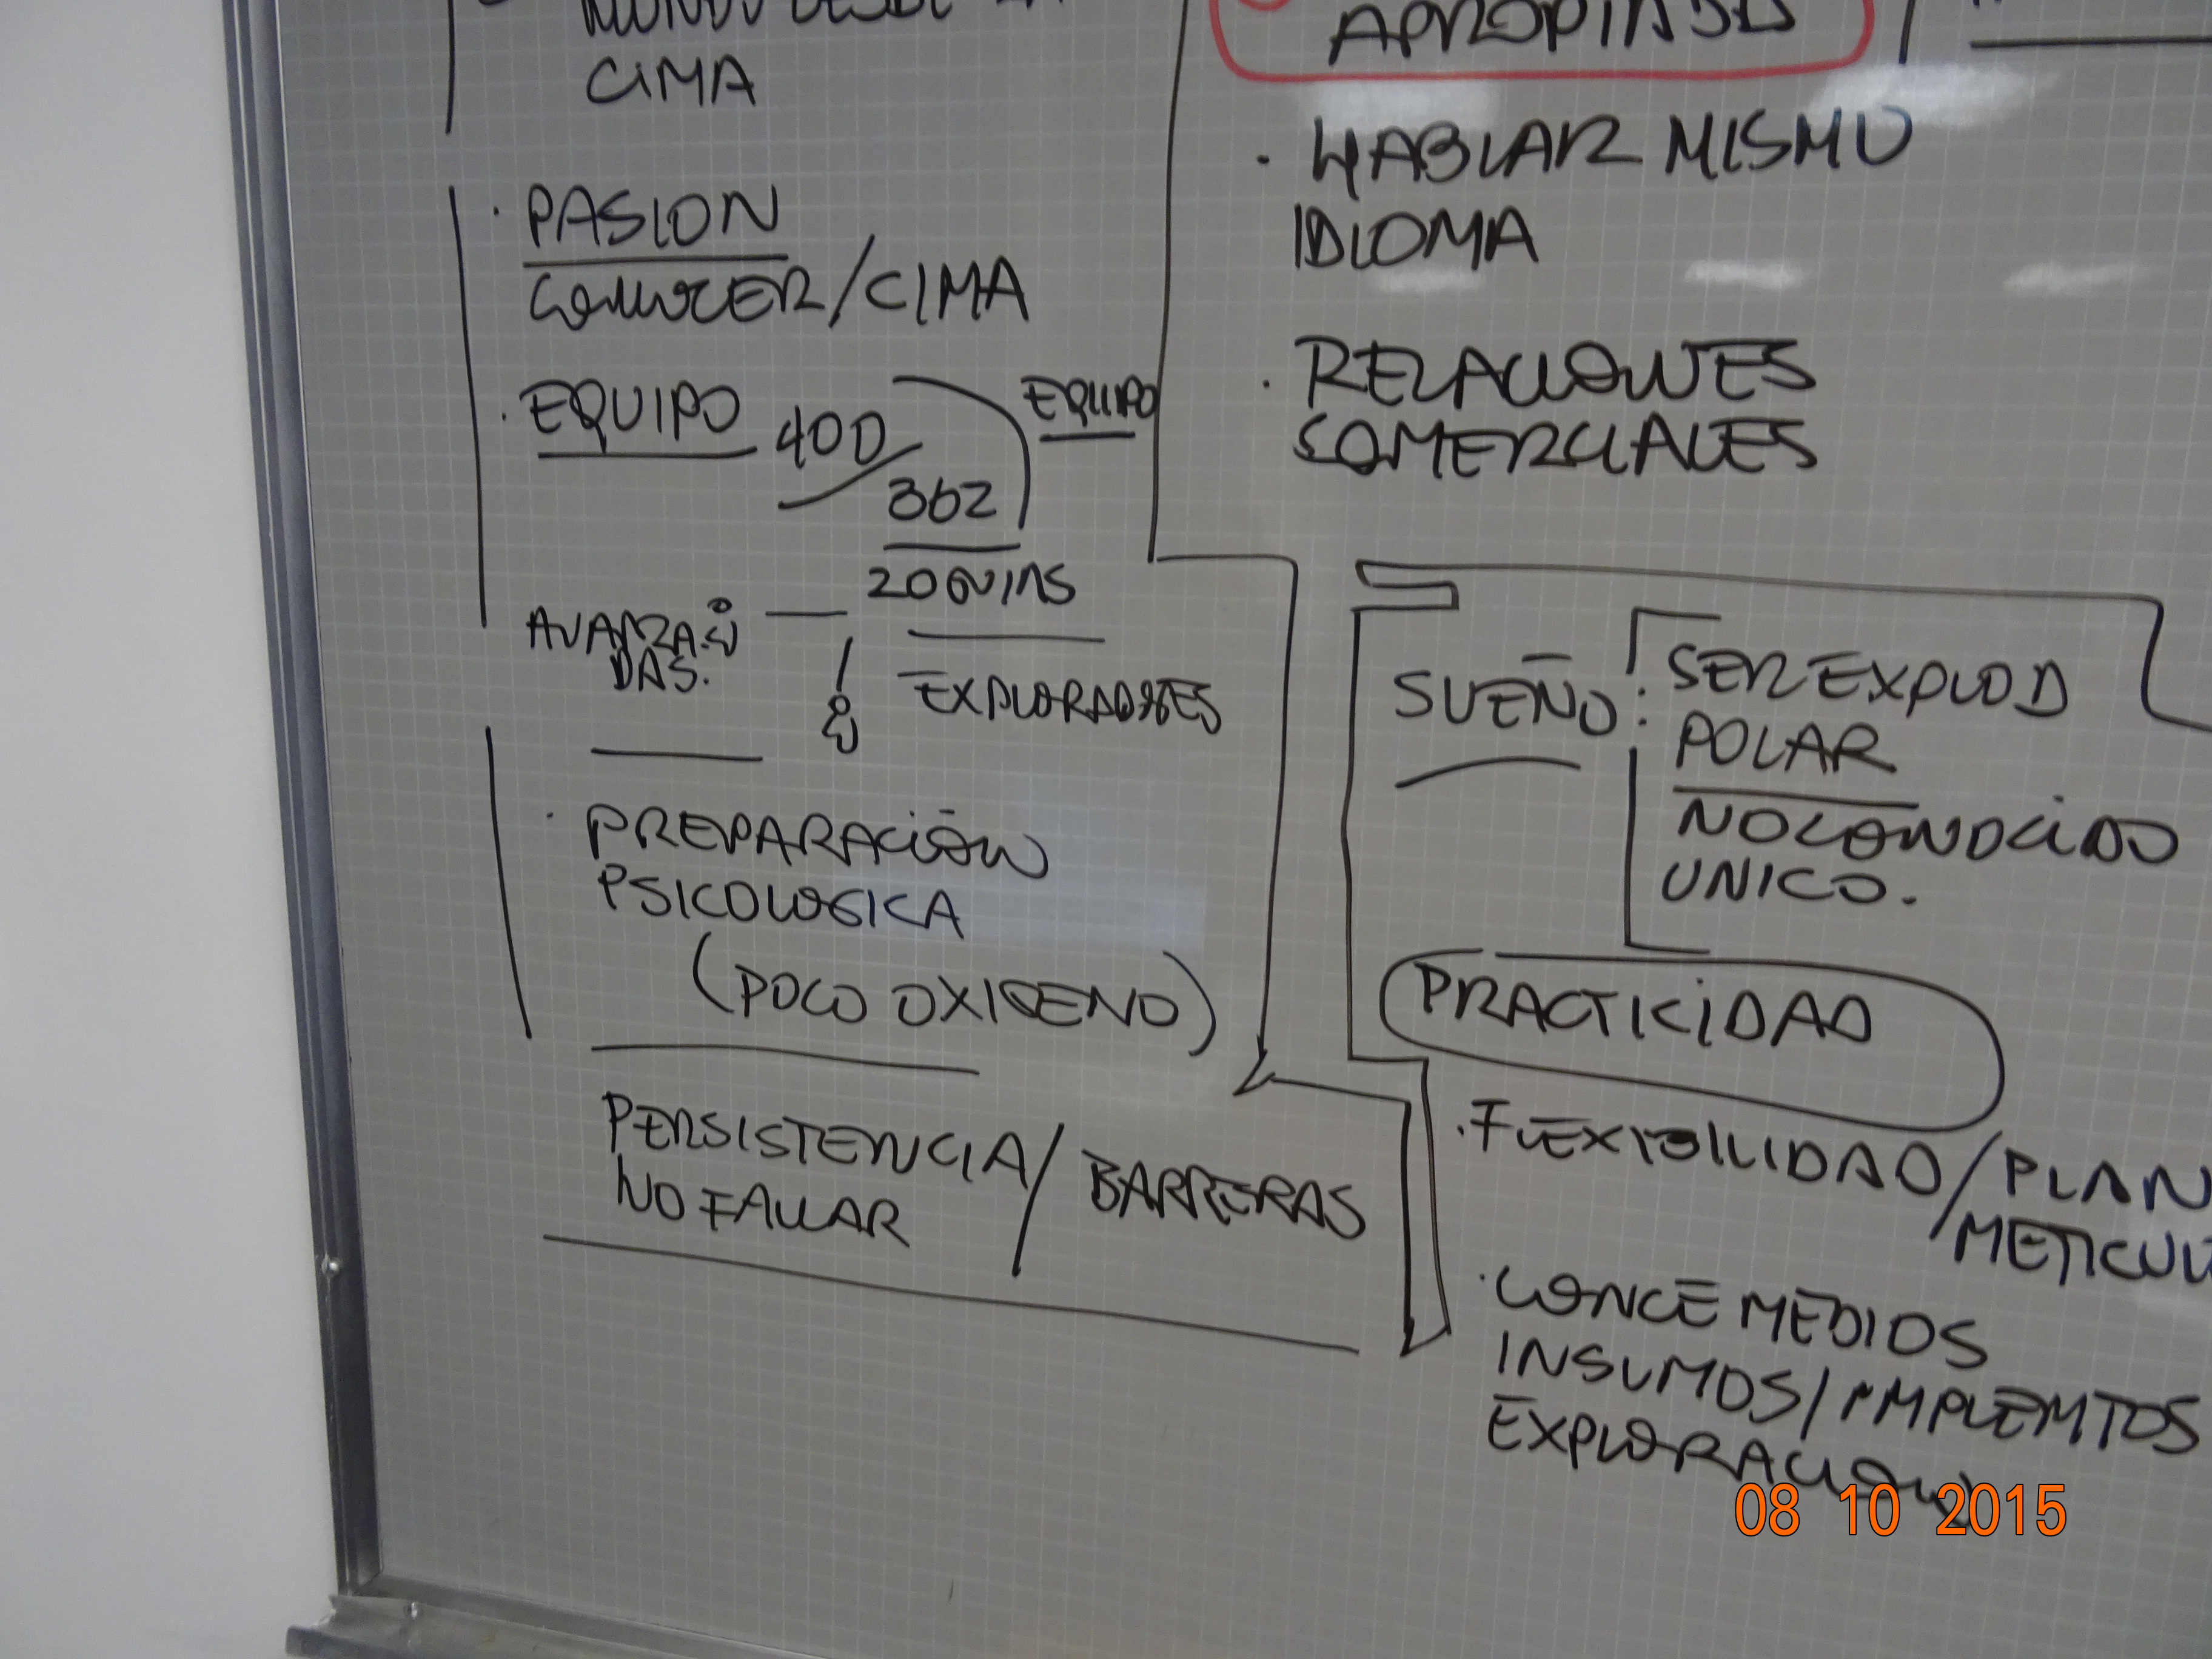 CIMA
· PASION
CONOCER/CIMA
· EQUIPO 400
362
EQUIPO
20 GUIAS
AVANZA-
DAS.
EXPLORADORES
· PREPARACIÓN
PSICOLOGICA
(POCO OXIGENO)
PERSISTENCIA/
NO FALLAR
BARRERAS
APROPIADAS
· HABLAR MISMO
IDIOMA
· RELACIONES
COMERCIALES
SUEÑO:
SER EXPLOD
POLAR
NO CONOCIDO
UNICO.
PRACTICIDAD
· FLEXIBILIDAD/PLAN
METICUL
· CONCE MEDIOS
INSUMOS/IMPLEMTOS
EXPLORACION
08 10 2015